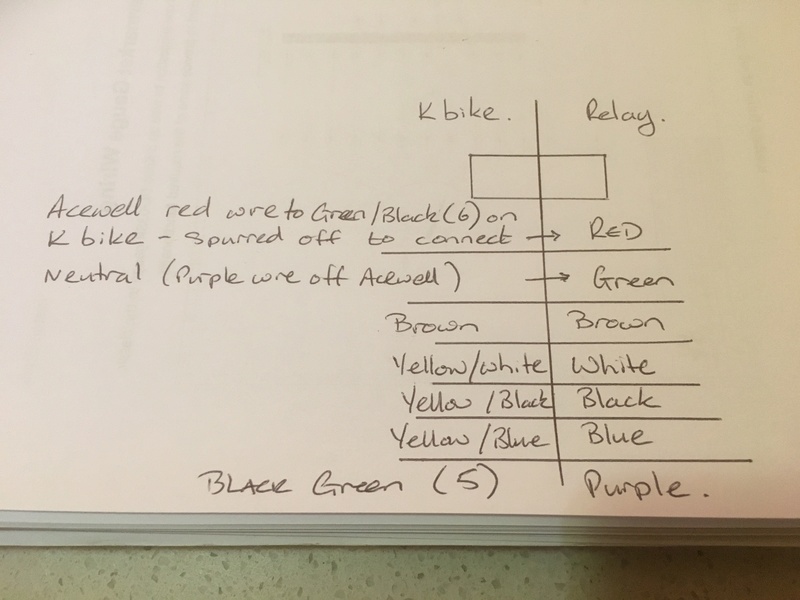 K bike. Relay.
Acewell red wire to Green/Black(6) on
K bike - Spurred off to connect → RED
Neutral (Purple wire off Acewell) → Green
Brown Brown
Yellow/white White
Yellow/Black Black
Yellow/Blue Blue
BLACK Green (5) Purple.